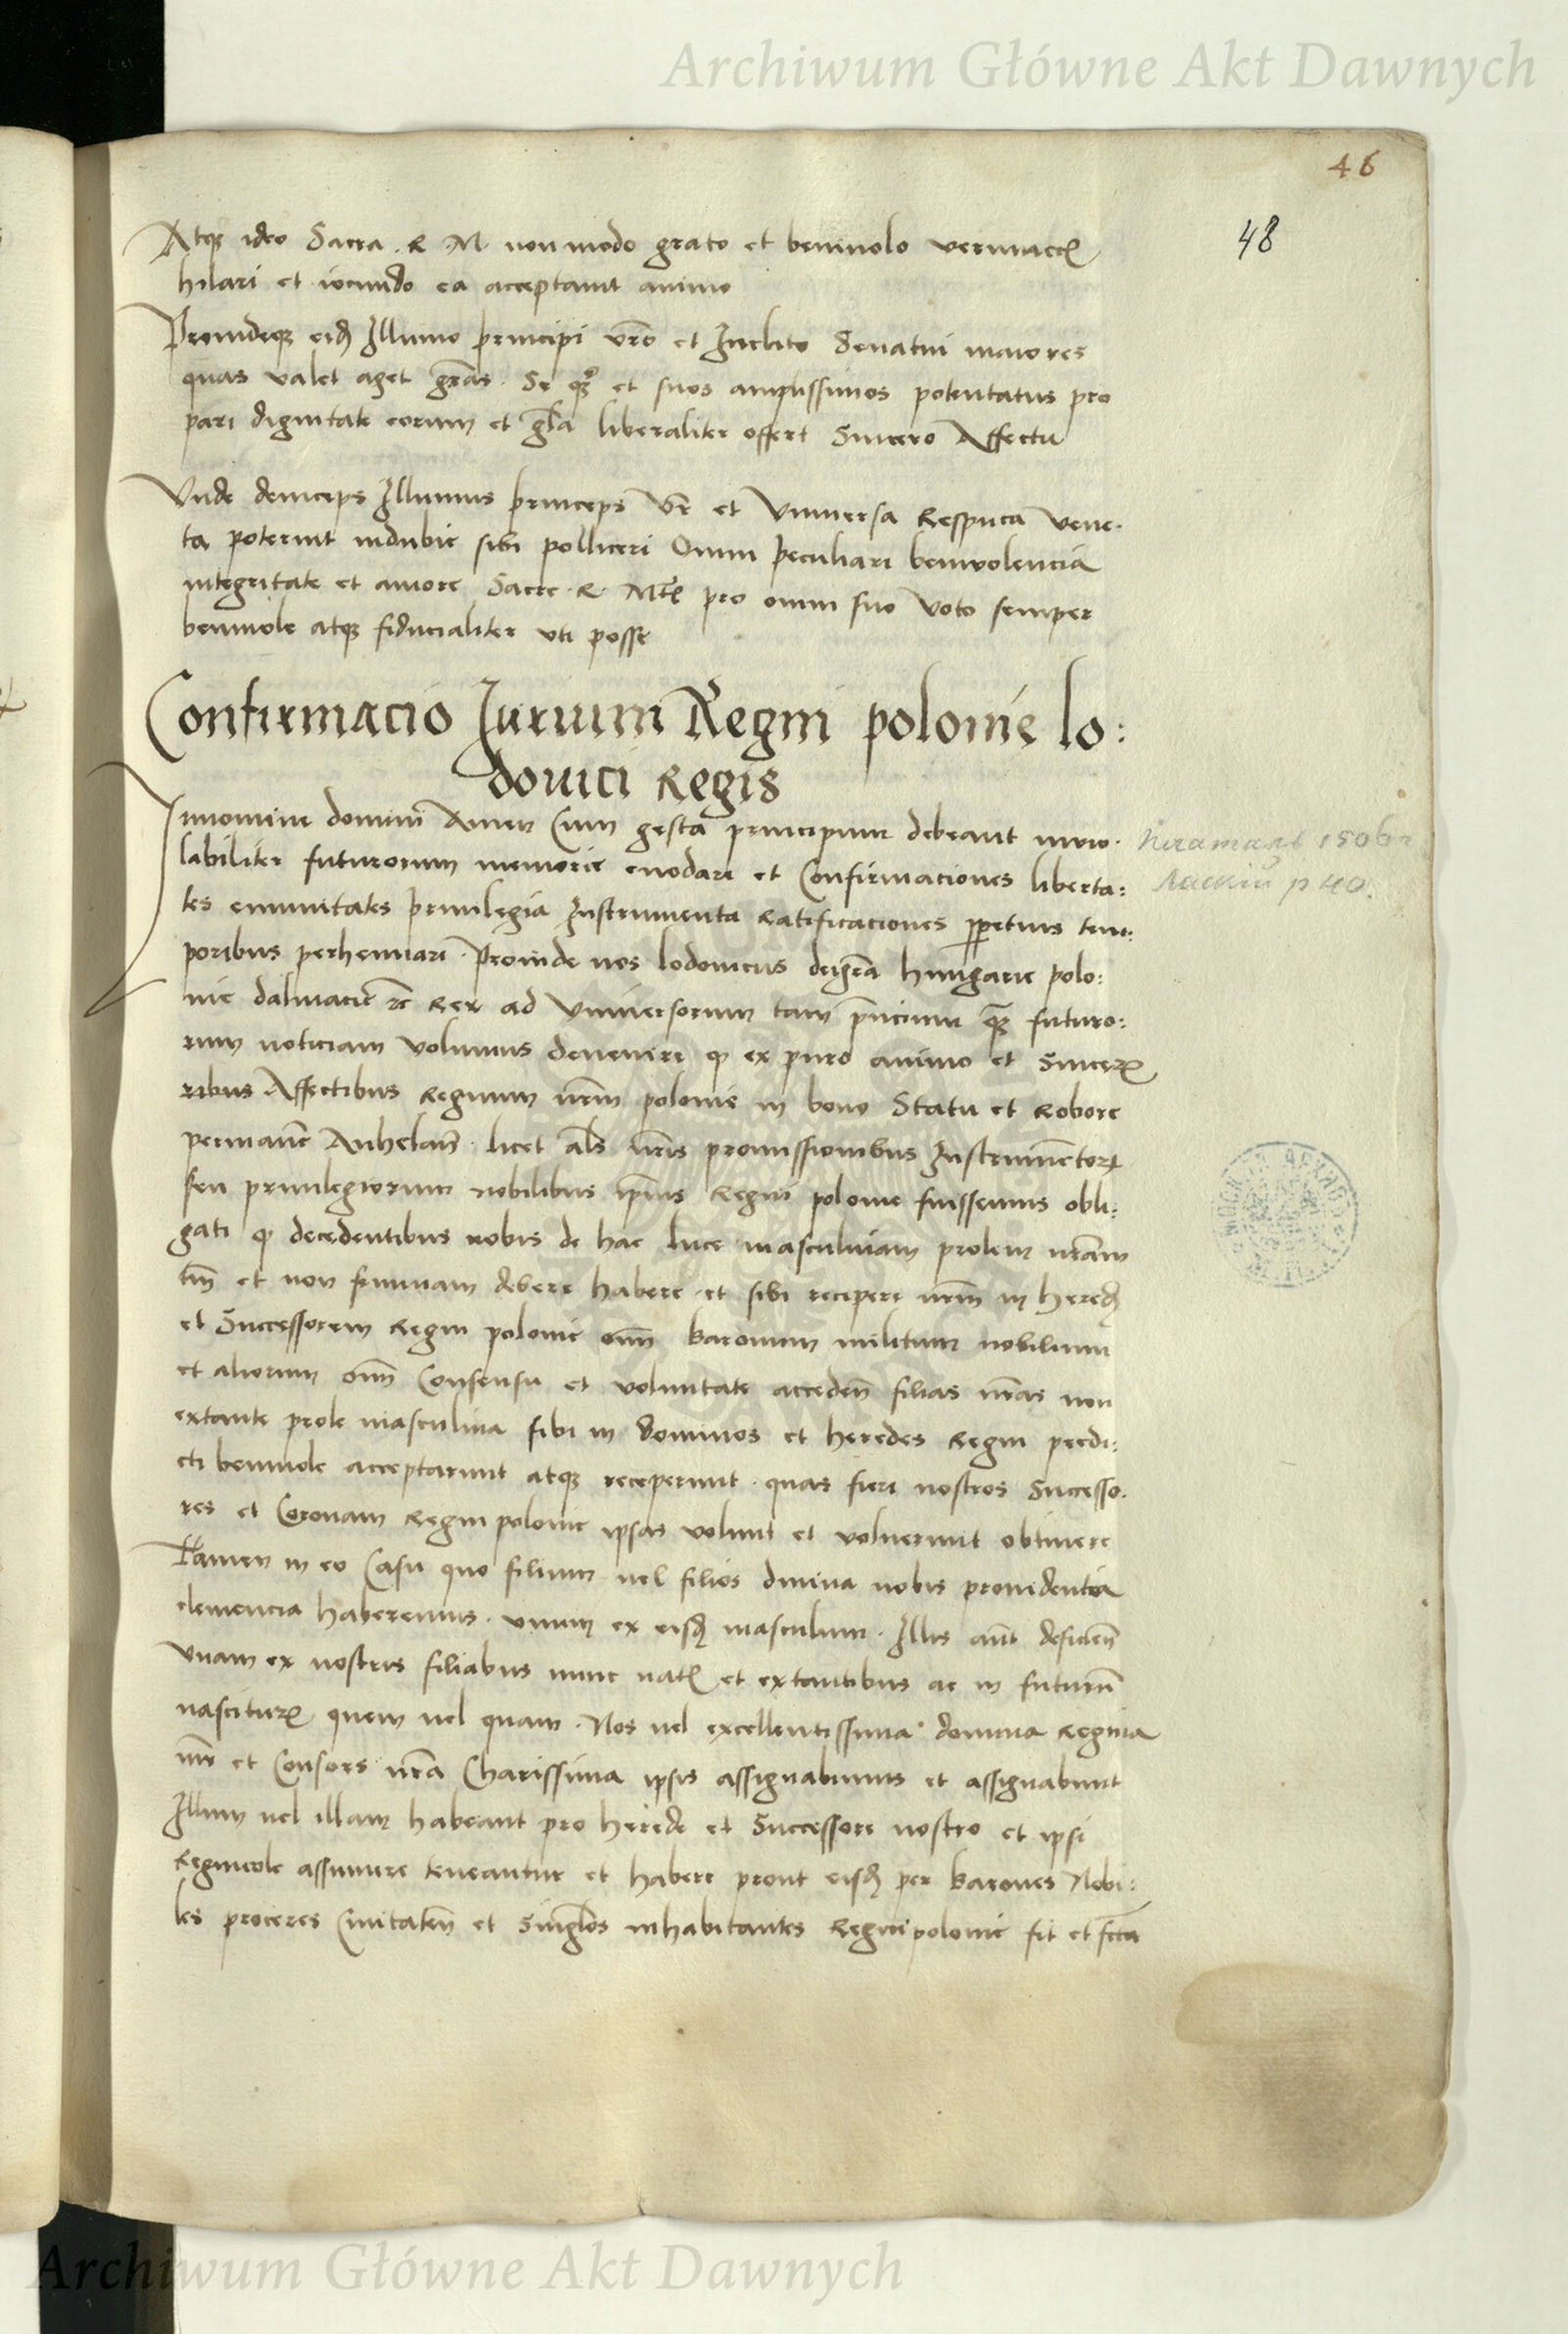 Archiwum Główne Akt Dawnych
46
48
Atq3 ideo Sacra . R . M non modo grato et benivolo verumecia
hilari et iocundo ea acceptavit animo
Proindeq3 eid Illumo principi vro et Inclito Senatui maiores
quas valet aget gras . Se q3 et suos amplissimos potentatus pro
pari dignitate eorum et gla liberaliter offert Sincero Affectu
Unde deinceps Illumus princeps vr et Universa Respuca Vene.
ta poterint indubie sibi polliceri Omni peculiari benivolencia
integritate et amore Sacre . R . Mtis pro omni suo voto semper
benivole atq3 fiducialiter uti posse
Confirmacio Jurium Regni polonie lo:
dovici Regis
Innomine domini Amen Cum gesta principum debeant invio.
labiliter futurorum memorie enodari et Confirmaciones liberta:
tes emunitates privilegia Instrumenta Ratificaciones perpetuis tem:
poribus perhennari . Proinde nos lodovicus deigra hungarie polo:
nie dalmacie rc Rex ad Universorum tam pncium q3 futuro:
rum noticiam volumus devenire q ex puro animo et Sincer
ribus Affectibus Regnum nrm polonie in bono Statu et Robore
permane Anhelam . licet als nris promissionibus Instrumentor
seu privilegiorum nobilibus ipius Regni polonie fuissemus obli:
gati q decedentibus nobis de hac luce masculinam prolem nram
tm et non feminam debere habere et sibi recipere nrm in hered
et Successorem Regni polonie omn baronum militum nobilium
et aliorum omn Consensu et voluntate acceden filias nras non
extante prole masculina sibi in dominos et heredes Regni predi:
cti benivole acceptarunt atq3 receperunt . quas fieri nostros Successo.
res et Coronam Regni polonie ipsas volunt et voluerunt obtinere
Tamen in eo Casu quo filium vel filios divina nobis providentia
clemencia haberemus . unum ex eisd masculum . Illis aut deficien
unam ex nostris filiabus nunc nat et extantibus ac in futurum
nascitur quem vel quam . Nos vel excellentissima domina Regina
mr et Consors nra Charissima ipsis assignabimus et assignabunt
Illum vel illam habeant pro herede et Successore nostro et ipsi
Regnicole assumere teneantur et habere prout eisd per barones Nobi:
les proceres Civitaten et Singlos inhabitantes Regni polonie sit et fcta
Archiwum Główne Akt Dawnych